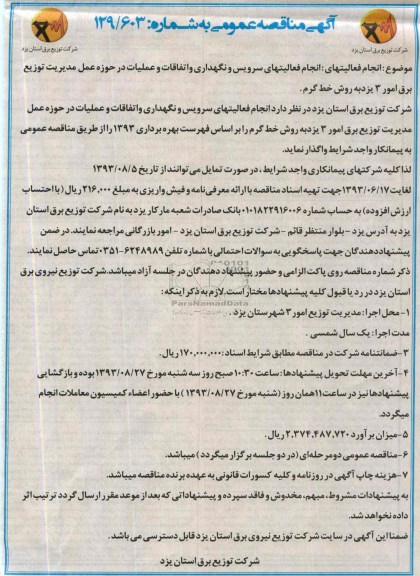 آگهی مناقصه عمومی به شماره: ۱۲۹/۶۰۳
شرکت توزیع برق استان یزد
شرکت توزیع برق استان یزد
موضوع: انجام فعالیتهای: انجام فعالیتهای سرویس و نگهداری و اتفاقات و عملیات در حوزه عمل مدیریت توزیع
برق امور ۳ یزد به روش خط گرم.
شرکت توزیع برق استان یزد در نظر دارد انجام فعالیتهای سرویس و نگهداری و اتفاقات و عملیات در حوزه عمل
مدیریت توزیع برق امور ۳ یزد به روش خط گرم را بر اساس فهرست بهره برداری ۱۳۹۳ را از طریق مناقصه عمومی
به پیمانکار واجد شرایط واگذار نماید.
لذا کلیه شرکتهای پیمانکاری واجد شرایط، در صورت تمایل می توانند از تاریخ ۱۳۹۳/۰۸/۵
لغایت ۱۳۹۳/۰۶/۱۷ جهت تهیه اسناد مناقصه با ارائه معرفی نامه و فیش واریزی به مبلغ ۲۱۶,۰۰۰ ریال (با احتساب
ارزش افزوده) به حساب شماره ۰۱۰۱۸۲۲۹۱۶۰۰۶ بانک صادرات شعبه مارکار یزد به نام شرکت توزیع برق استان
یزد به آدرس یزد - بلوار منتظر قائم - شرکت توزیع برق استان یزد - امور بازرگانی مراجعه نمایند. در ضمن
پیشنهاد دهندگان جهت پاسخگویی به سوالات احتمالی با شماره تلفن ۶۲۴۸۹۸۹-۰۳۵۱ تماس حاصل نمایند.
ذکر شماره مناقصه روی پاکت الزامی و حضور پیشنهاد دهندگان در جلسه آزاد میباشد. شرکت توزیع نیروی برق
استان یزد در رد یا قبول کلیه پیشنهادها مختار است. لازم به ذکر اینکه:
ParsNamadData
۱- محل اجرا: مدیریت توزیع امور ۳ شهرستان یزد.
مدت اجرا: یک سال شمسی.
۳- ضمانتنامه شرکت در مناقصه مطابق شرایط اسناد: ۱۷۰,۰۰۰,۰۰۰ ریال.
۴- آخرین مهلت تحویل پیشنهادها: ساعت ۱۰:۳۰ صبح روز سه شنبه مورخ ۱۳۹۳/۰۸/۲۷ بوده و بازگشایی
پیشنهادها نیز در ساعت ۱۱ همان روز (شنبه مورخ ۱۳۹۳/۰۸/۲۷) با حضور اعضاء کمیسیون معاملات انجام
میگردد.
۵- میزان برآورد ۲,۳۷۴,۴۸۷,۷۲۰ ریال.
۶- مناقصه عمومی دو مرحله ای (در دو جلسه برگزار میگردد) میباشد.
۷- هزینه چاپ آگهی در روزنامه و کلیه کسورات قانونی به عهده برنده مناقصه میباشد.
به پیشنهادات مشروط، مبهم، مخدوش و فاقد سپرده و پیشنهاداتی که بعد از موعد مقرر ارسال گردد ترتیب اثر
داده نخواهد شد.
ضمنا این آگهی در سایت شرکت توزیع نیروی برق استان یزد قابل دسترسی می باشد.
شرکت توزیع برق استان یزد